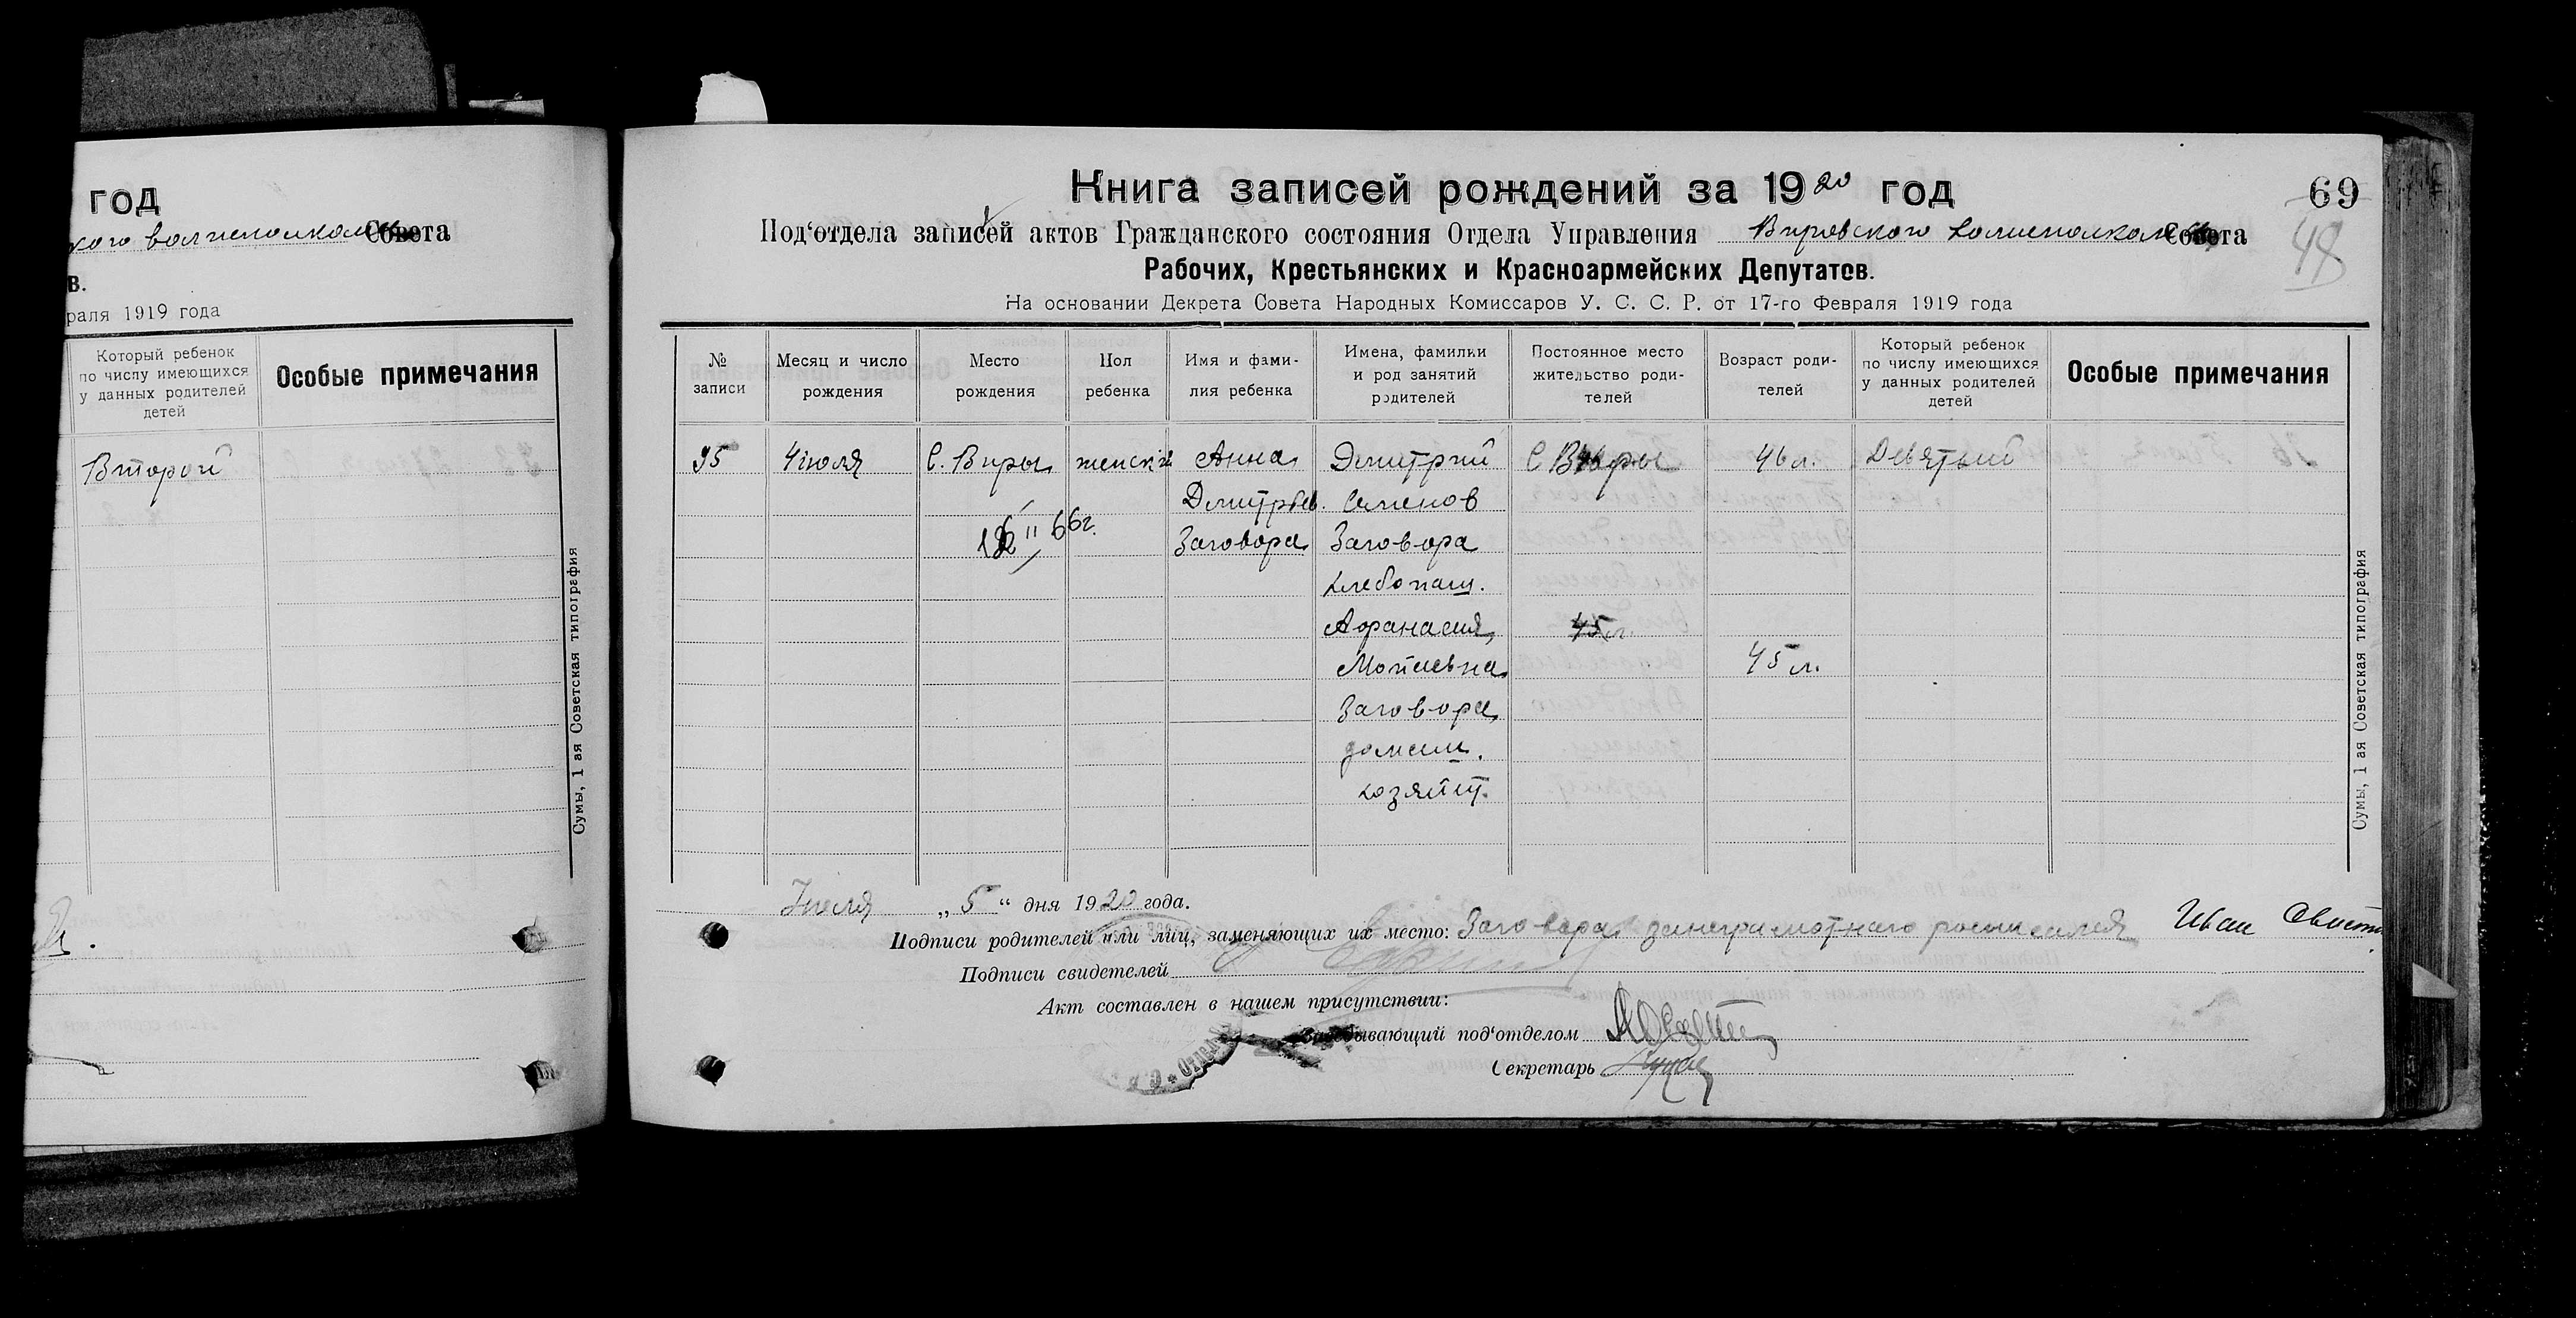 год
кого волисполкома Совета
в.
раля 1919 года
Который ребенок
по числу имеющихся
у данных родителей
детей
Особые примечания
Второй
Сумы, 1 ая Советская типография
Книга записей рождений за 1920 год
69
48
Под‘отдела записей актов Гражданского состояния Отдела Управления Вировского волисполкома Совета
Рабочих, Крестьянских и Красноармейских Депутатов.
На основании Декрета Совета Народных Комиссаров У. С. С. Р. от 17-го Февраля 1919 года
№
записи
Месяц и число
рождения
Место
рождения
Пол
ребенка
Имя и фами-
лия ребенка
Имена, фамилии
и род занятий
родителей
Постоянное место
жительство роди-
телей
Возраст роди-
телей
Который ребенок
по числу имеющихся
у данных родителей
детей
Особые примечания
95 4 июля С. Виры женскій Анна Дмитрий С Виры 46 л. Девятый
Дмитрьев. Семенов
66г. Заговора Заговора
хлебопаш.
Афанасия 45 л.
Мотиевна 45 л.
Заговора
домаш.
хозяйт.
Сумы, 1 ая Советская типография
Июля „5“ дня 1920 года.
Подписи родителей или лиц, заменяющих их место: Заговора занеграмотнаго росписался Иван
Подписи свидетелей
Акт составлен в нашем присутствии:
Заведывающий под‘отделом
Секретарь